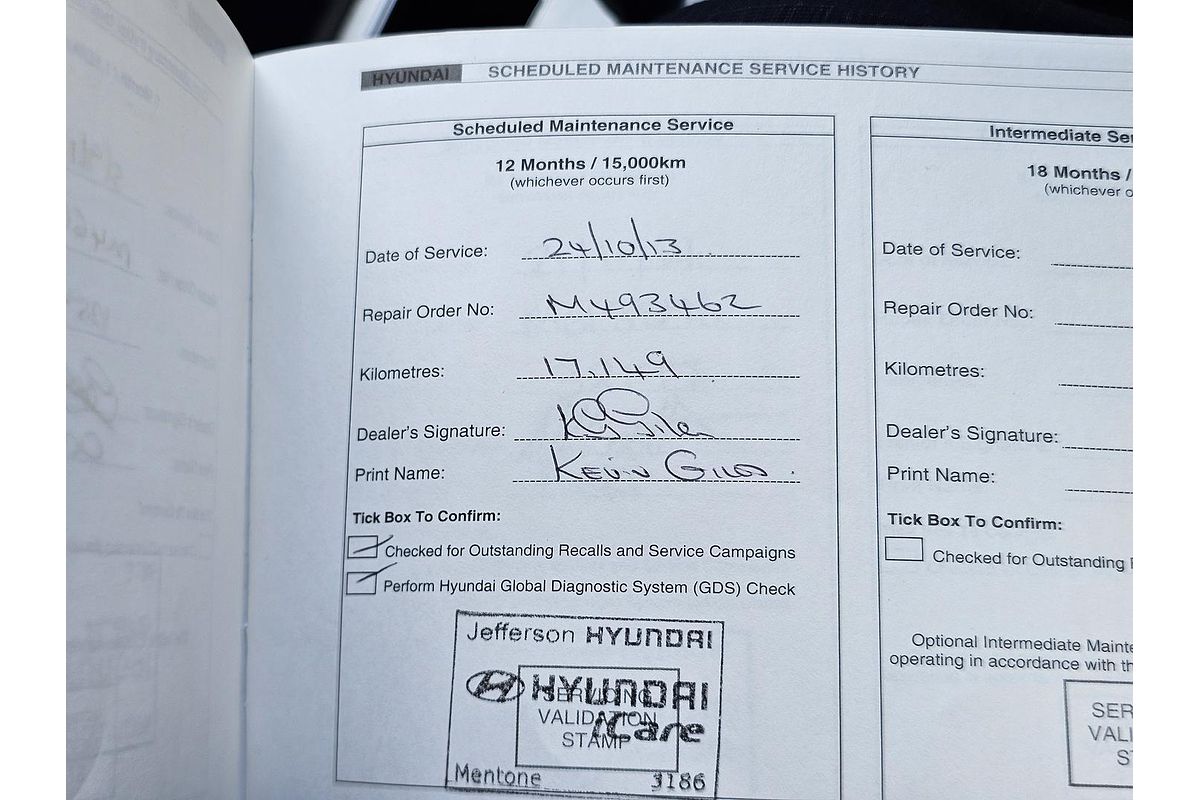 HYUNDAI SCHEDULED MAINTENANCE SERVICE HISTORY
Scheduled Maintenance Service
12 Months / 15,000km
(whichever occurs first)
Date of Service: 24/10/13
Repair Order No: M493462
Kilometres: 17,149
Dealer's Signature:
Print Name: Kevin
Tick Box To Confirm:
Checked for Outstanding Recalls and Service Campaigns
Perform Hyundai Global Diagnostic System (GDS) Check
Jefferson HYUNDAI
HYUNDAI
iCare
SERVICING
VALIDATION
STAMP
Mentone 3186
Intermediate Ser
18 Months /
(whichever o
Date of Service:
Repair Order No:
Kilometres:
Dealer's Signature:
Print Name:
Tick Box To Confirm:
Checked for Outstanding
Optional Intermediate Mainte
operating in accordance with th
SER
VALI
ST